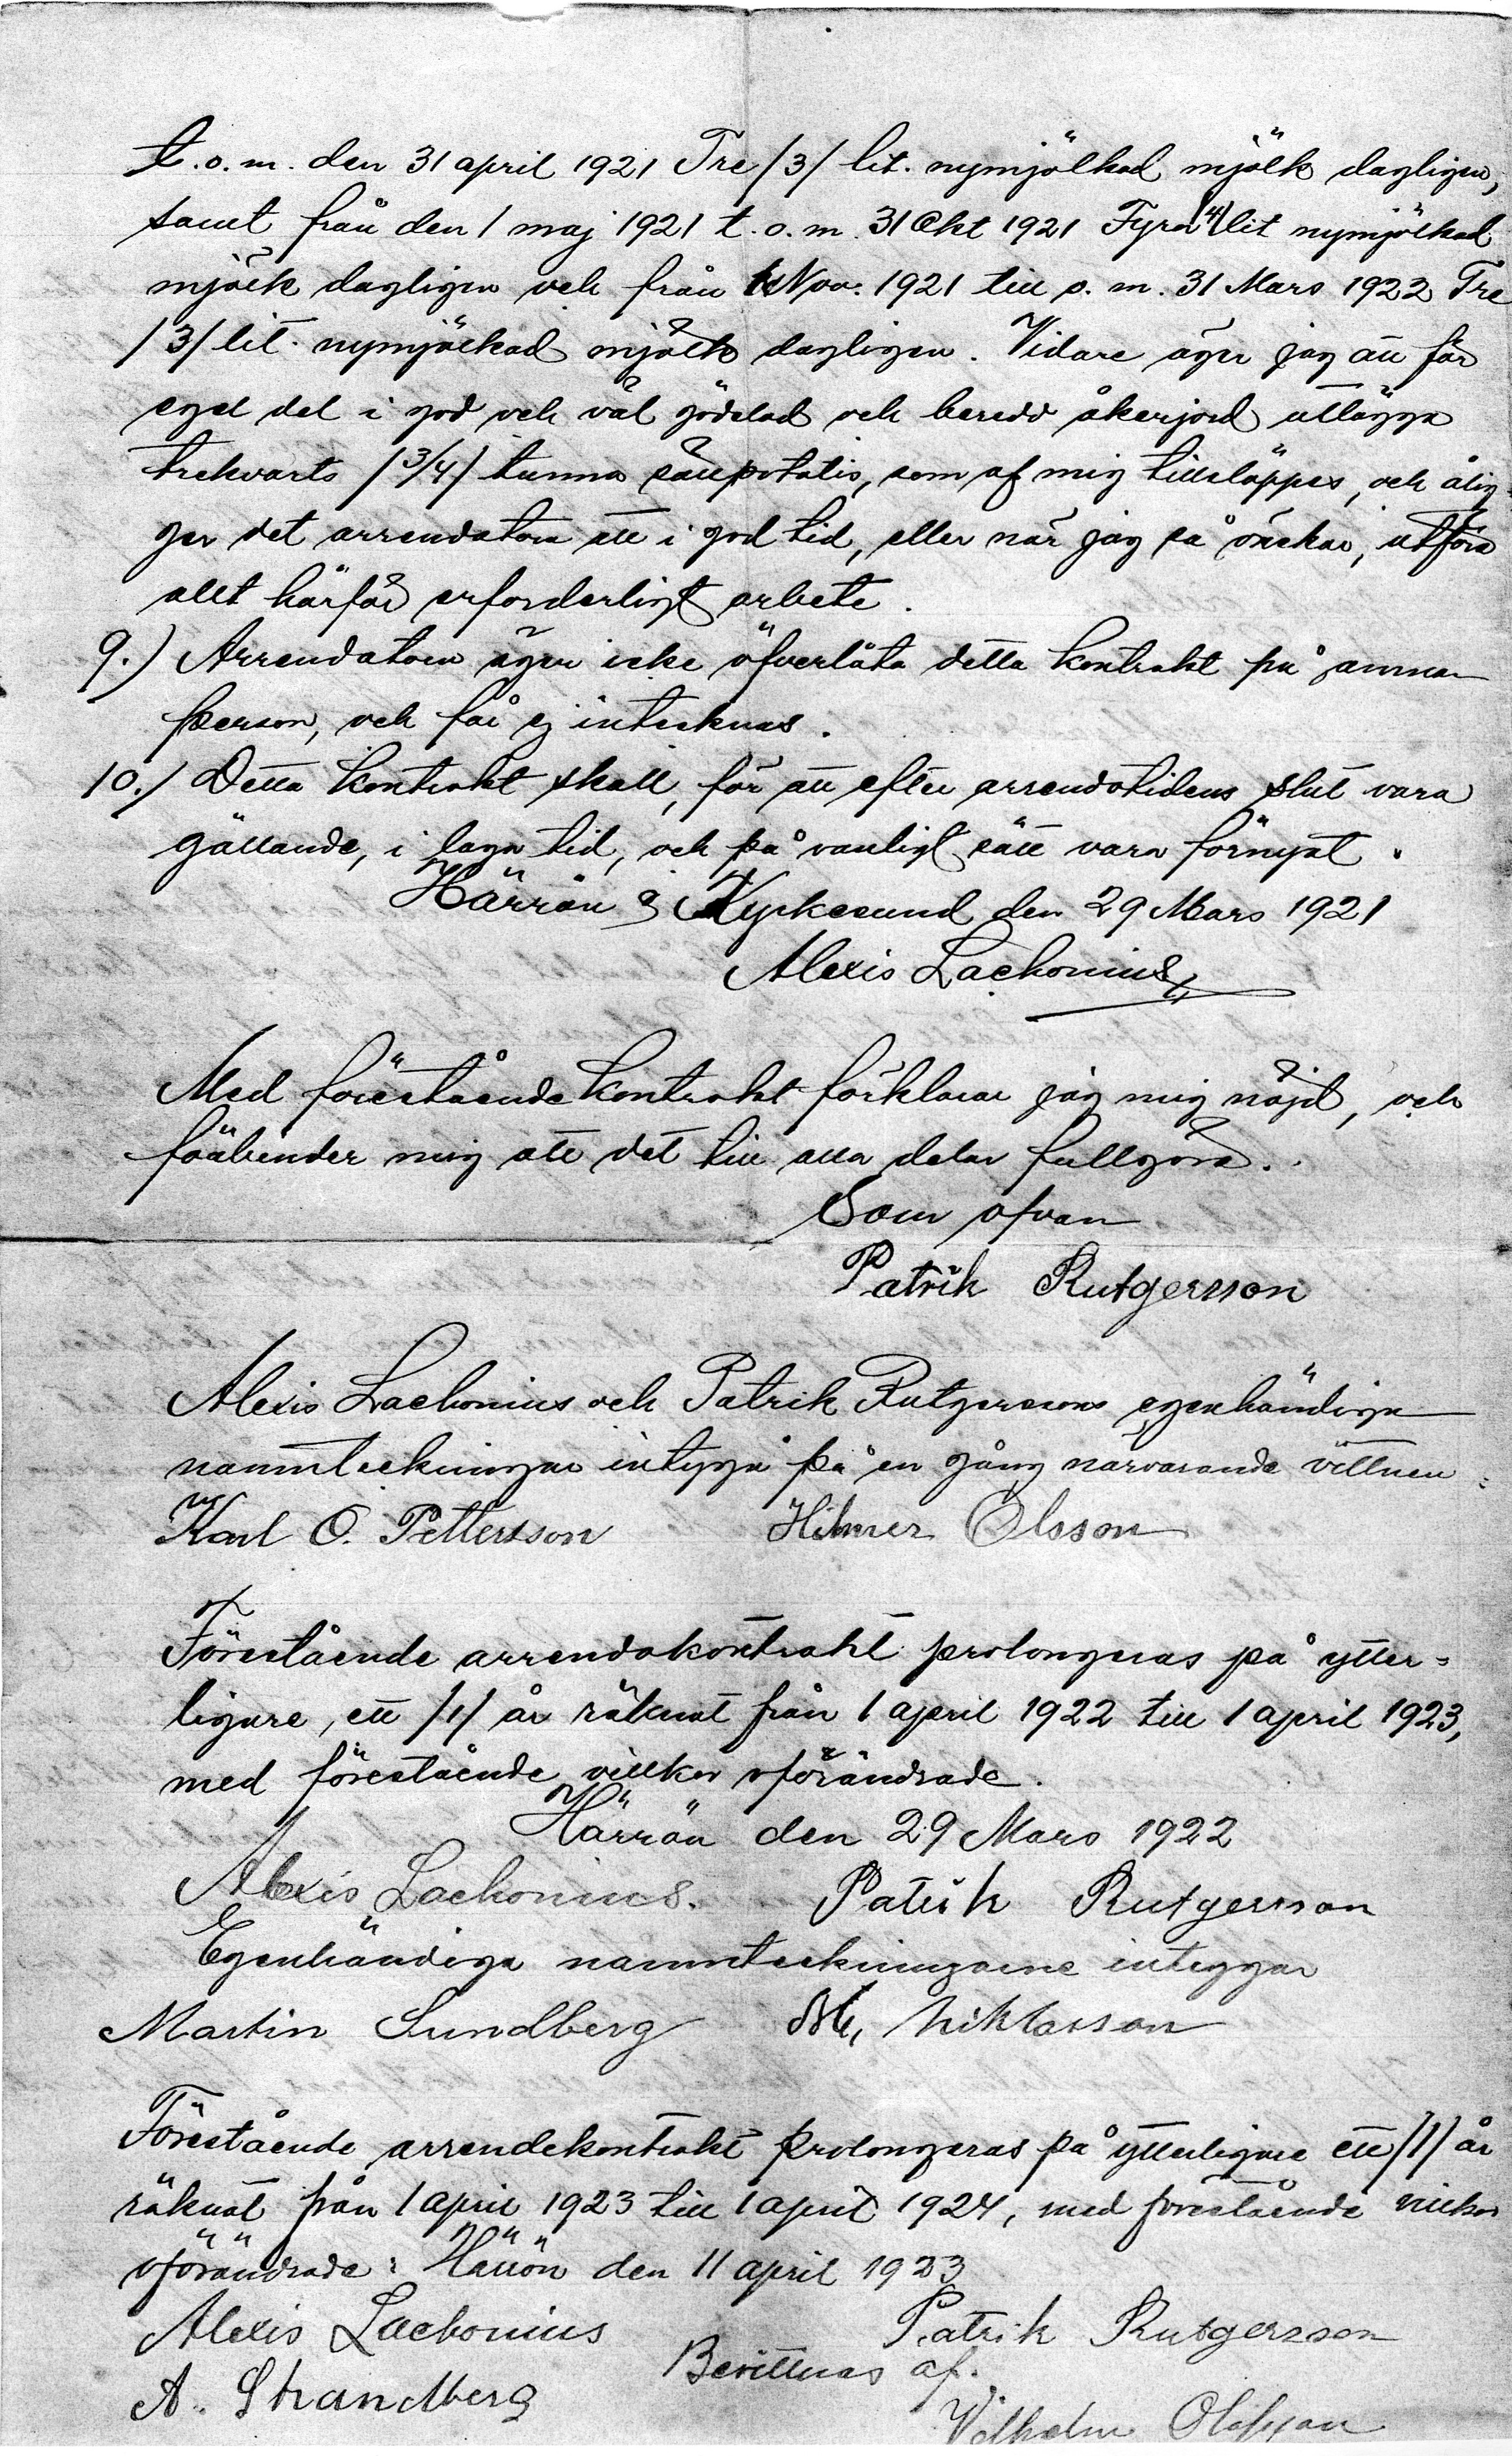 t.o.m. den 31 april 1921 Tre /3/ lit. nymjölkad mjölk dagligen,
samt från den 1 maj 1921 t.o.m. 31 Okt 1921 Fyra /4/ lit nymjölkad
mjölk dagligen och från 1 Nov. 1921 till o. m. 31 Mars 1922 Tre
/3/ lit. nymjölkad mjölk dagligen. Vidare äger jag att för
eget del i god och väl gödslad och beredd åkerjord utlägga
trekvarts /3/4/ tunna sättpotatis, som af mig tillsläppes, och ålig-
ger det arrendatorn att i god tid, eller när jag så önskar, utföra
allt härför erforderligt arbete.
9.) Arrendatorn äger icke öfverlåta detta kontrakt på annan
person, och får ej intecknas.
10./ Detta kontrakt skall, för att efter arrendetidens slut vara
gällande, i laga tid, och på vanligt sätt vara förnyat.
Härrön & Kyrkesund den 29 Mars 1921
Alexis Lackonius
Med förestående kontrakt förklarar jag mig nöjd, och
förbinder mig att det till alla delar fullgöra.
Som ofvan
Patrik Rutgersson
Alexis Lackonius och Patrik Rutgerssons egenhändiga
namnteckningar intyga på en gång närvarande vittnen:
Karl O. Pettersson Hilmer Olsson
Förestående arrendekontrakt prolongeras på ytter-
ligare, ett /1/ år räknat från 1 april 1922 till 1 april 1923,
med förestående villkor oförändrade.
Härrön den 29 Mars 1922
Alexis Lackonius. Patrik Rutgersson
Egenhändiga namnteckningarne intygar
Martin Sundberg Niklasson
Förestående arrendekontrakt prolongeras på ytterligare ett /1/ år
räknat från 1 april 1923 till 1 april 1924, med förestående villkor
oförändrade: Härrön den 11 april 1923
Alexis Lackonius Patrik Rutgersson
Bevittnas af.
A. Strandberg
Vilhelm Olofsson